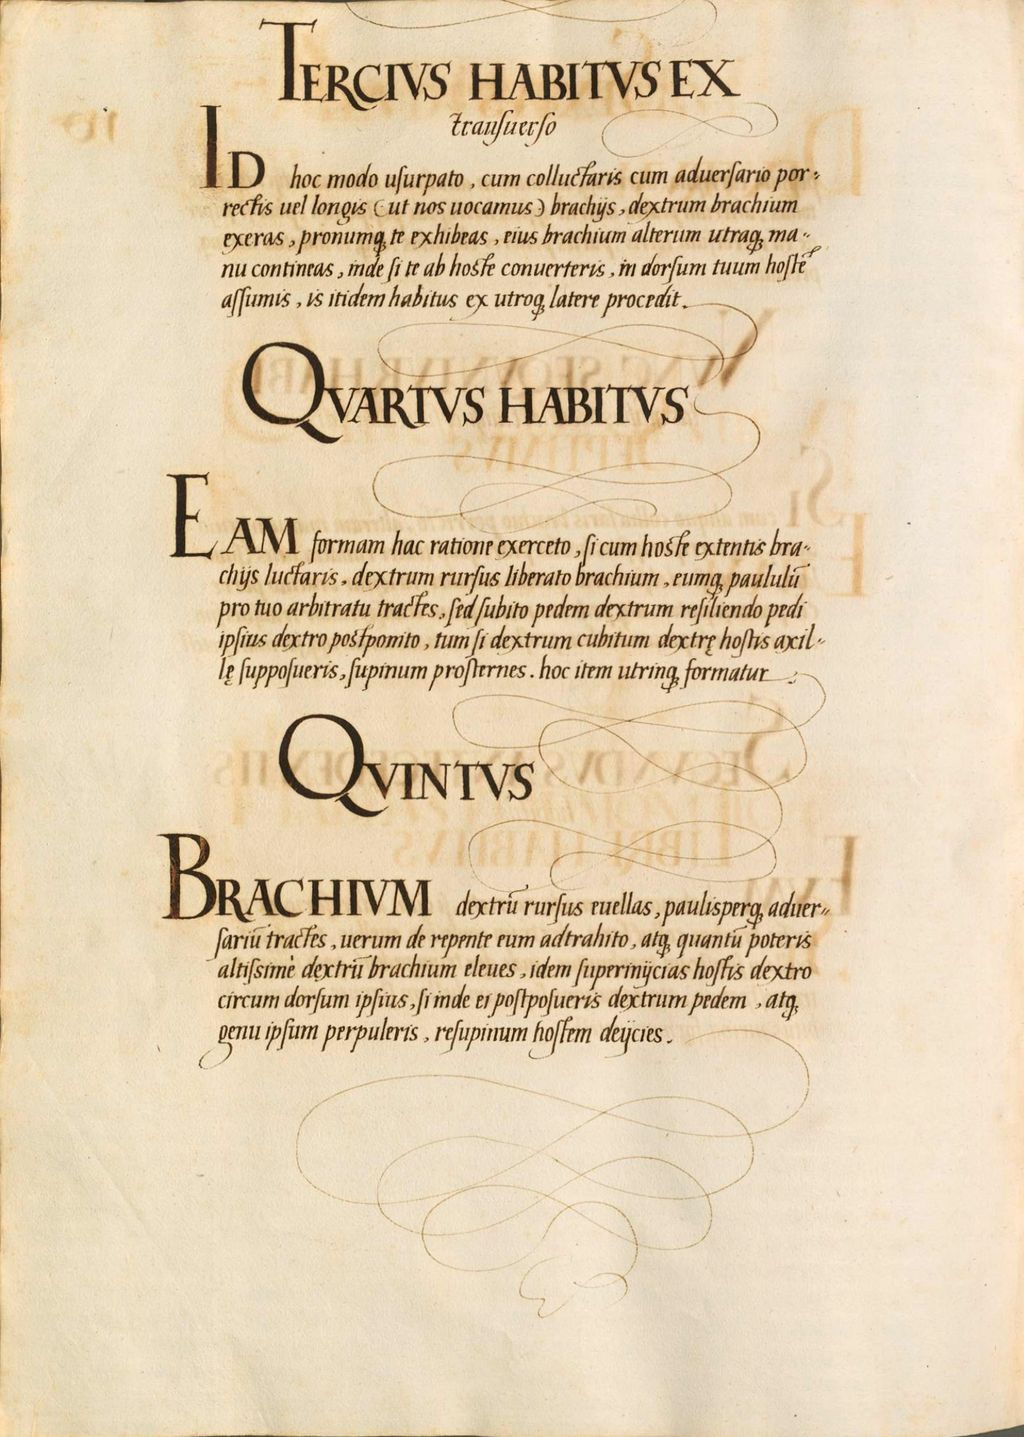 TERCIVS HABITVS EX
transuerso
ID hoc modo usurpato, cum colluctaris cum aduersario por-
rectis uel longis (ut nos uocamus) brachijs, dextrum brachium
exeras, pronumq; te exhibeas, eius brachium alterum utraq; ma-
nu contineas, inde si te ab hoste conuerteris, in dorsum tuum hostē
assumis, is itidem habitus ex utroq; latere procedit.
QVARTVS HABITVS
EAM formam hac ratione exerceto, si cum hoste extentis bra-
chijs luctaris, dextrum rursus liberato brachium, eumq; paululū
pro tuo arbitratu tractes, sed subito pedem dextrum resiliendo pedi
ipsius dextro postponito, tum si dextrum cubitum dextrę hostis axil-
lę supposueris, supinum prosternes. hoc item utrinq; formatur.
QVINTVS
BRACHIVM dextrū rursus euellas, paulisperq; aduer-
sariū tractes, uerum de repente eum adtrahito, atq; quantū poteris
altissimè dextrū brachium eleues, idem superinijcias hostis dextro
circum dorsum ipsius, si inde ei postposueris dextrum pedem, atq;
genu ipsum perpuleris, resupinum hostem deijcies.